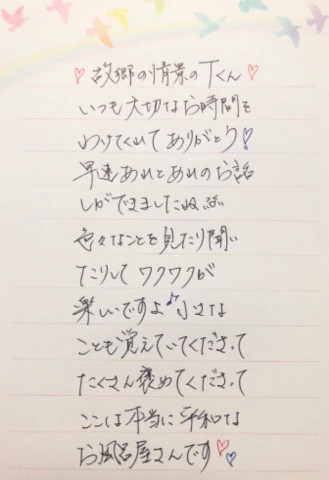 ♡故郷の情景のTくん♡
いつも大切なお時間を
わけてくれてありがとう!
早速あれとあれのお話
しができましたね
色々なことを見たり聞い
たりして ワクワクが
楽しいですよ♪小さな
ことも覚えていてくださって
たくさん褒めてくださって
ここは本当に平和な
お風呂屋さんです♡♡